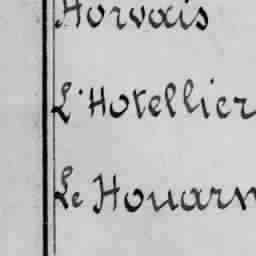 Horvais
L'Hotellier
Le Houarn